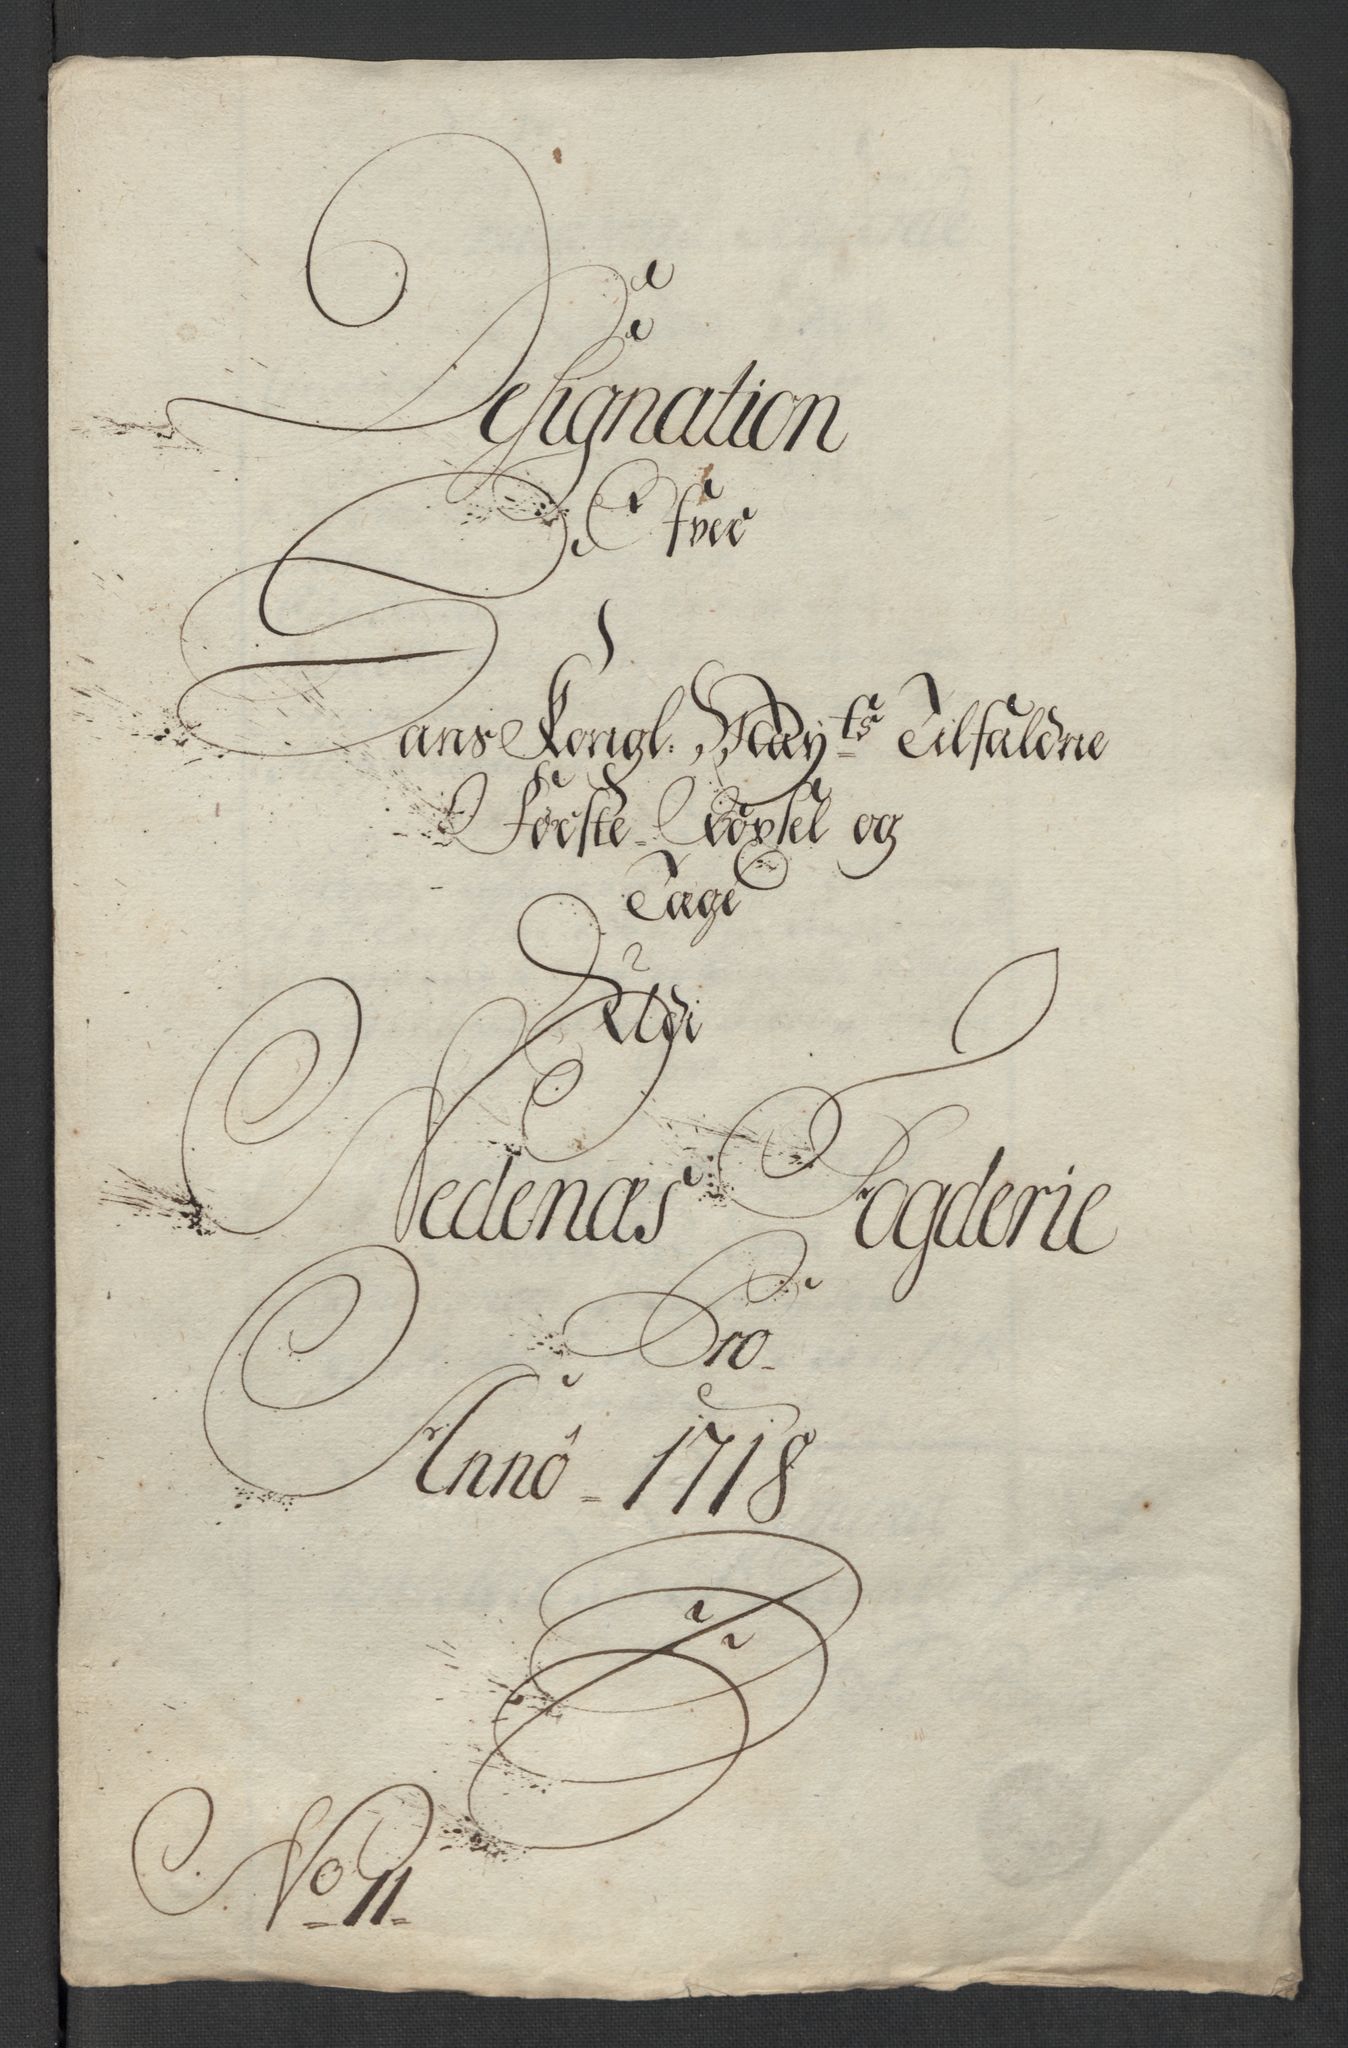 Designation
Ofver
Hans Kongl. Mayts Tilfaldne
Første- Røxsel og
Tage
Udi
Nedenæs Fogderie
Pro
Anno 1718
No 11